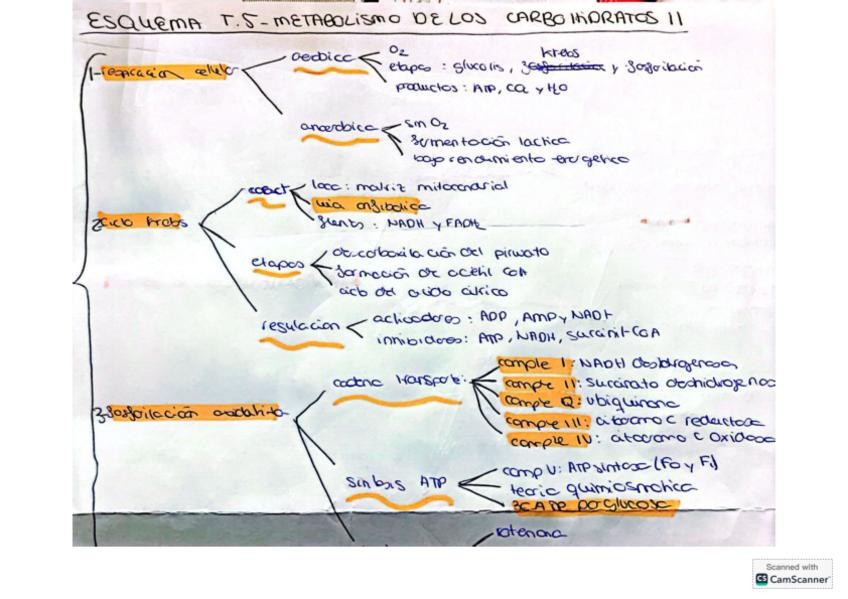 ESQUEMA T.5-METABOLISMO DE LOS CARBOHIDRATOS II
1-respiración celular
aerobica
O2
Krebs
etapas : glucolisis, y fosforilación
productos : ATP, CO2 y H2O
anaerobica
sin O2
fermentación lactica
bajo rendimiento energetico
2-ciclo Krebs
loca : matriz mitocondrial
via anfibolica
NADH y FADH2
etapas
descarboxilación del piruvato
formación de acetil CoA
ciclo del acido citrico
regulacion
activadores : ADP, AMP y NADH
innibidores : ATP, NADH, Succinil CoA
3-fosforilación oxidativa
cadena transporte
comple I : NADH
comple II : Succinato
comple Q : Ubiquinona
comple III : citocromo C reductasa
comple IV : citocromo C oxidasa
sintesis ATP
comp V : ATP sintasa (Fo y F1)
teoria quimiosmotica
GLUCOSA
rotenona
Scanned with
CS CamScanner